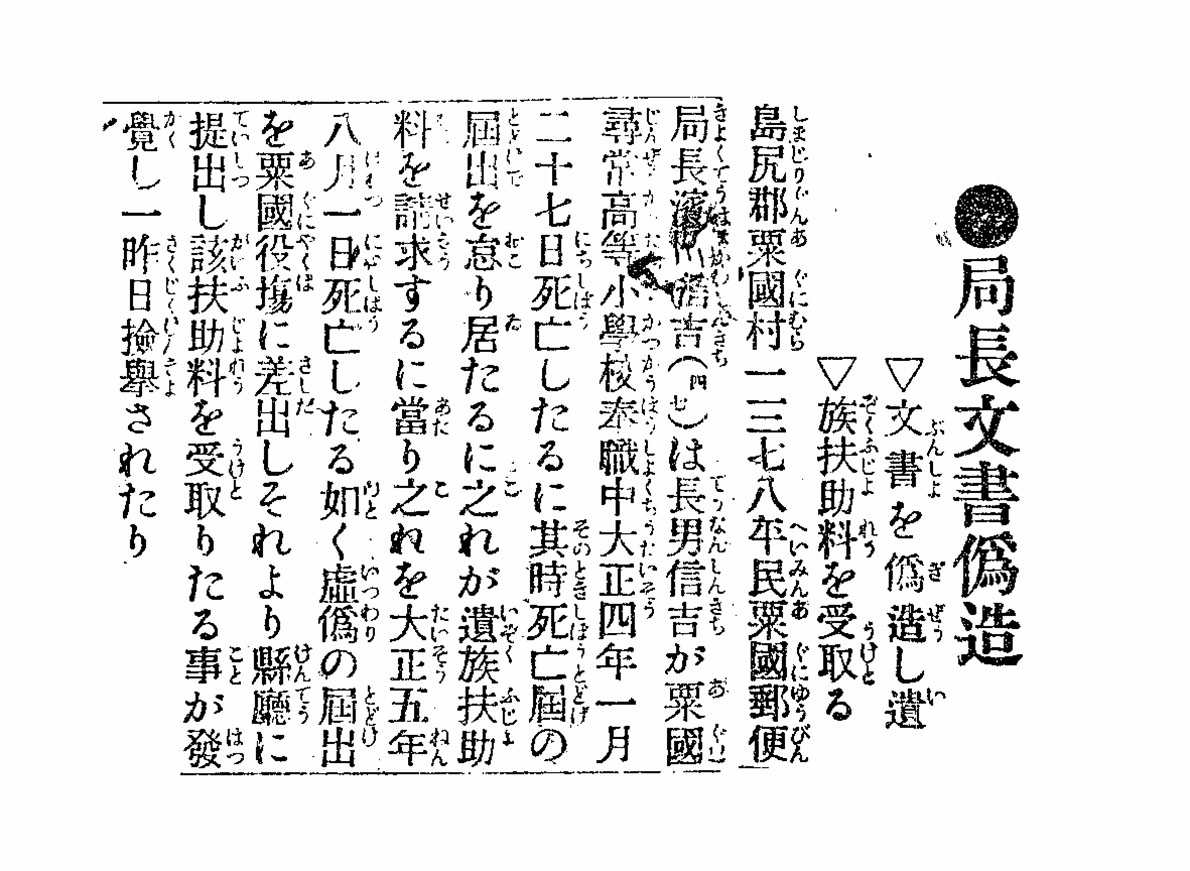 ●局長文書僞造
▽文書を僞造し遺
▽族扶助料を受取る
島尻郡粟國村一二三七八年民粟國郵便
局長濱川 吉(四七)は長男信吉が粟國
尋常高等小學校奉職中大正四年一月
二十七日死亡したるに其時死亡屆の
屆出を怠り居たるに之れが遺族扶助
料を請求するに當り之れを大正五年
八月一日死亡したる如く虛僞の屆出
を粟國役塲に差出しそれより縣廳に
提出し該扶助料を受取りたる事が發
覺し一昨日撿擧されたり